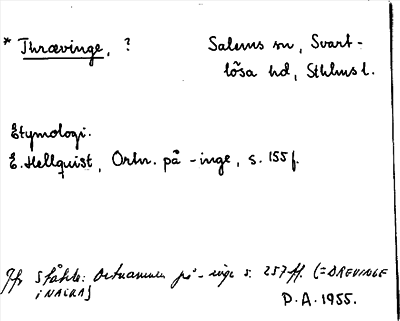 * Thrævinge, ? Salems sn, Svart-
lösa hd, Sthlms l.
Etymologi.
E. Hellquist, Ortn. på -inge, s. 155 f.
Jfr Ståhle: Ortnamnen på -inge s. 257 ff. (= DREVINGE
i NACKA)
D.A. 1955.